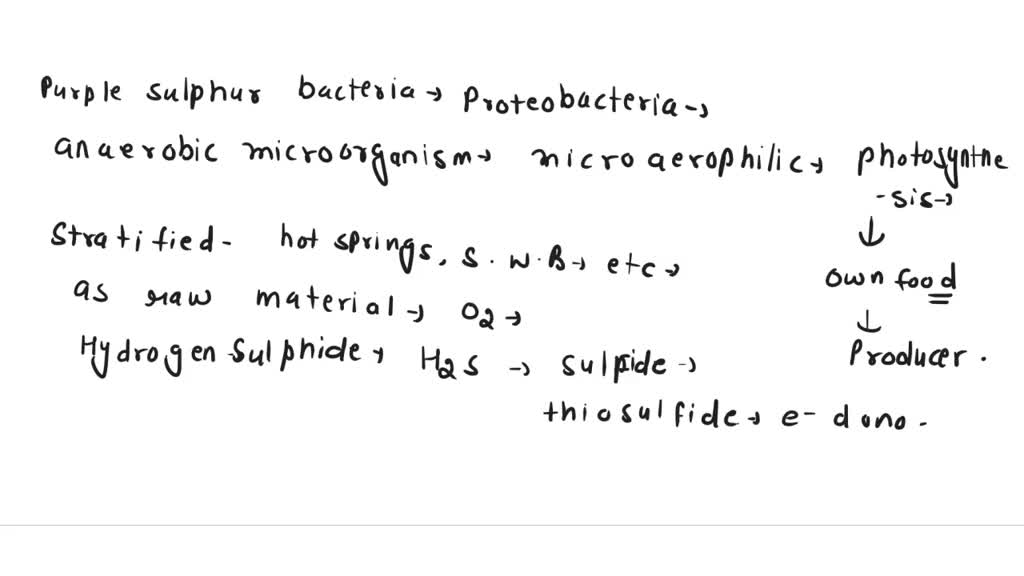 Purple sulphur bacteria → Proteobacteria →
anaerobic microorganism → microaerophilic → photosynthe
-sis →
↓
own food
↓
Producer.
Stratified - hot springs, S.W.B → etc →
as raw material → O2 →
Hydrogen Sulphide → H2S → sulfide →
thiosulfide → e- dono.